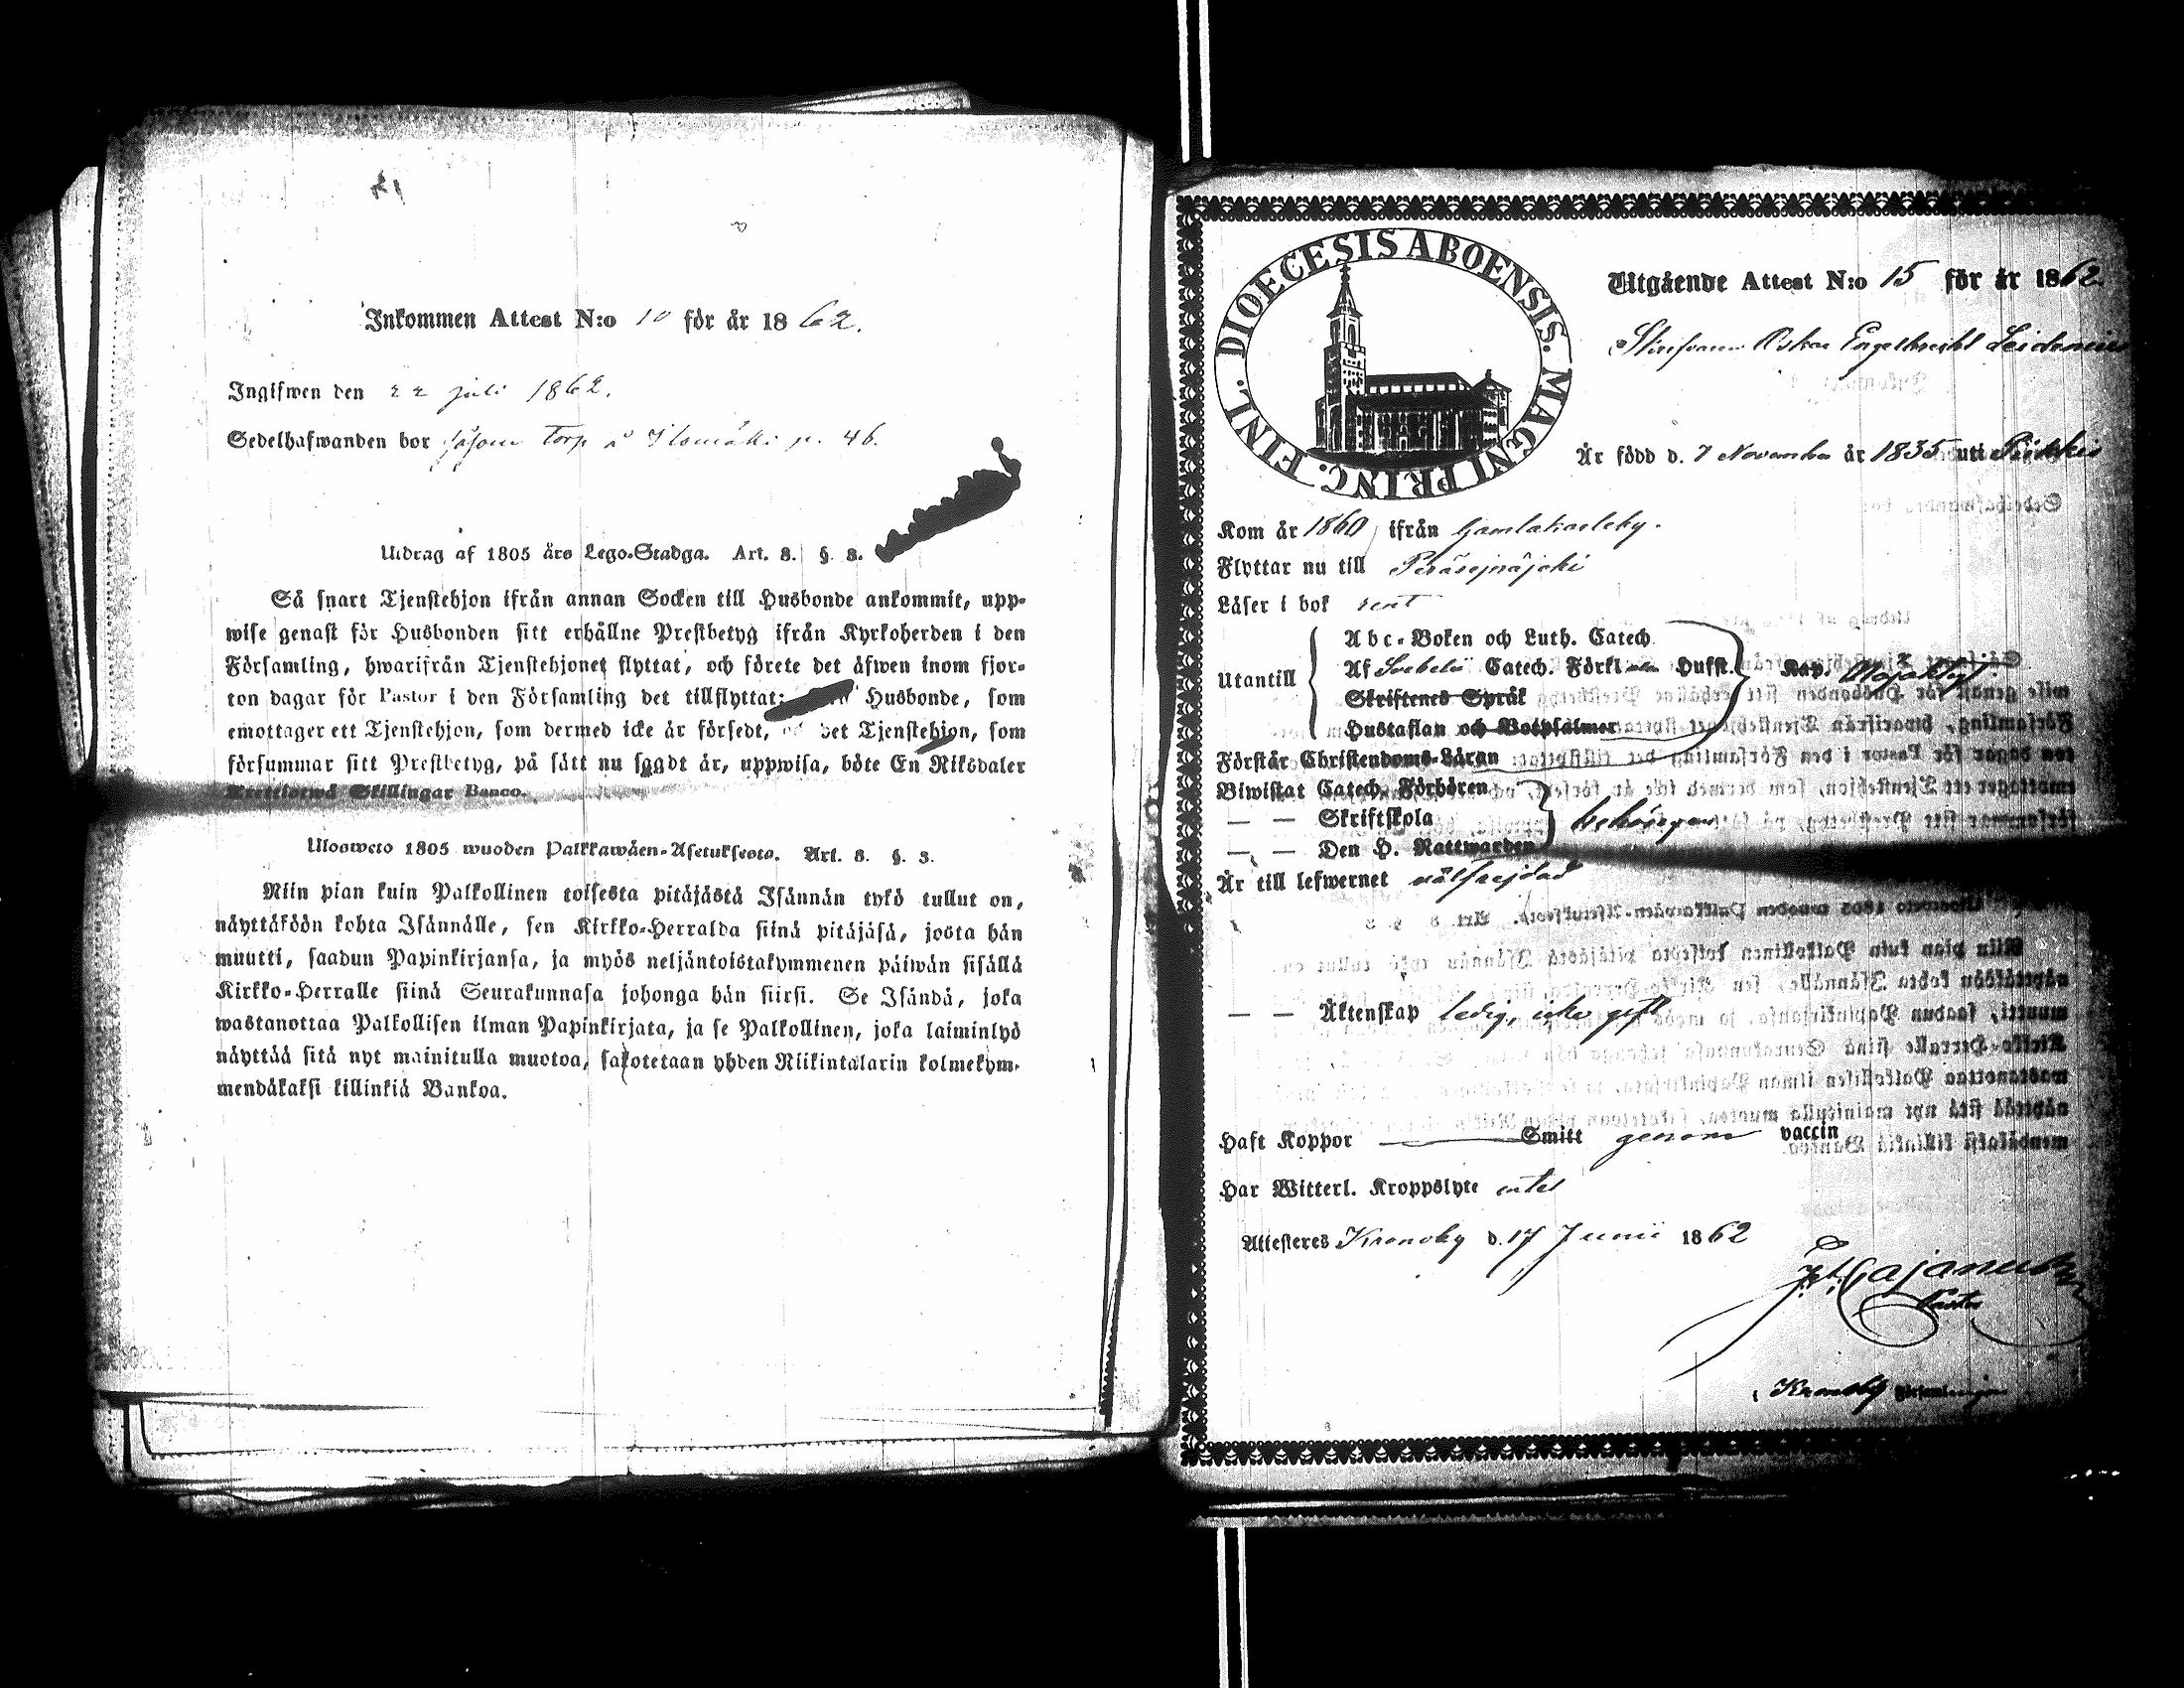 Inkommen Attest N:o 10 för år 1862.
Ingifwen den 22 juli 1862.
Sedelhafwanden bor Torp å Ilomäki n. 46.
Utdrag af 1805 års Lego-Stadga. Art. 8. §. 3.
Så snart Tjenstehjon ifrån annan Socken till Husbonde ankommit, upp-
wise genast för Husbonden sitt erhållne Prestbetyg ifrån Kyrkoherden i den
Församling, hwarifrån Tjenstehjonet flyttat, och förete det äfwen inom fjor-
ton dagar för Pastor i den Församling det tillflyttat; Husbonde, som
emottager ett Tjenstehjon, som dermed icke är försedt, det Tjenstehjon, som
försummar sitt Prestbetyg, på sätt nu sagdt är, uppwisa, böte En Riksdaler
Skillingar Banco.
Ulosweto 1805 wuoden Palkkawäen-Asetuksesta. Art. 8. §. 3.
Niin pian kuin Palkollinen toisesta pitäjästä Isännän tykö tullut on,
näyttäköön kohta Isännälle, sen Kirkko-Herralda siinä pitäjäsä, josta hän
muutti, saadun Papinkirjansa, ja myös neljäntoistakymmenen päiwän sisällä
Kirkko-Herralle siinä Seurakunnasa johonga hän siirsi. Se Isändä, joka
wastanottaa Palkollisen ilman Papinkirjata, ja se Palkollinen, joka laiminlyö
näyttää sitä nyt mainitulla muotoa, sakotetaan yhden Riikintalarin kolmekym-
mendäkaksi killinkiä Bankoa.
DIOECESIS ABOENSIS. MAGNI PRINC. FINL.
Utgående Attest N:o 15 för år 1862
Oskar Engelbrecht Leidenius
Är född d. 7 November år 1835 uti Piikkis
Kom år 1860 ifrån Gamlakarleby.
Flyttar nu till Peräsejnäjoki
Läser i bok rent
Utantill
Abc-Boken och Luth. Catech.
Af Svebelii Catech. Förkl utan Husst. Kap.
Skriftenes Språk
Hustaflan och Botpsalmer
Förstår Christendoms-Läran
Biwistat Catech. Förhören
— — Skriftskola
— — Den H. Nattwarden
behörigen
Är till lefwernet välfrejdad
— — Äktenskap ledig, icke gift
Haft Koppor Smitt genom vaccin
Har Witterl. Kroppslyte intet
Attesteres Kronoby d. 17 Junii 1862
Cajanus
Pastor
i Kronoby Församlingen